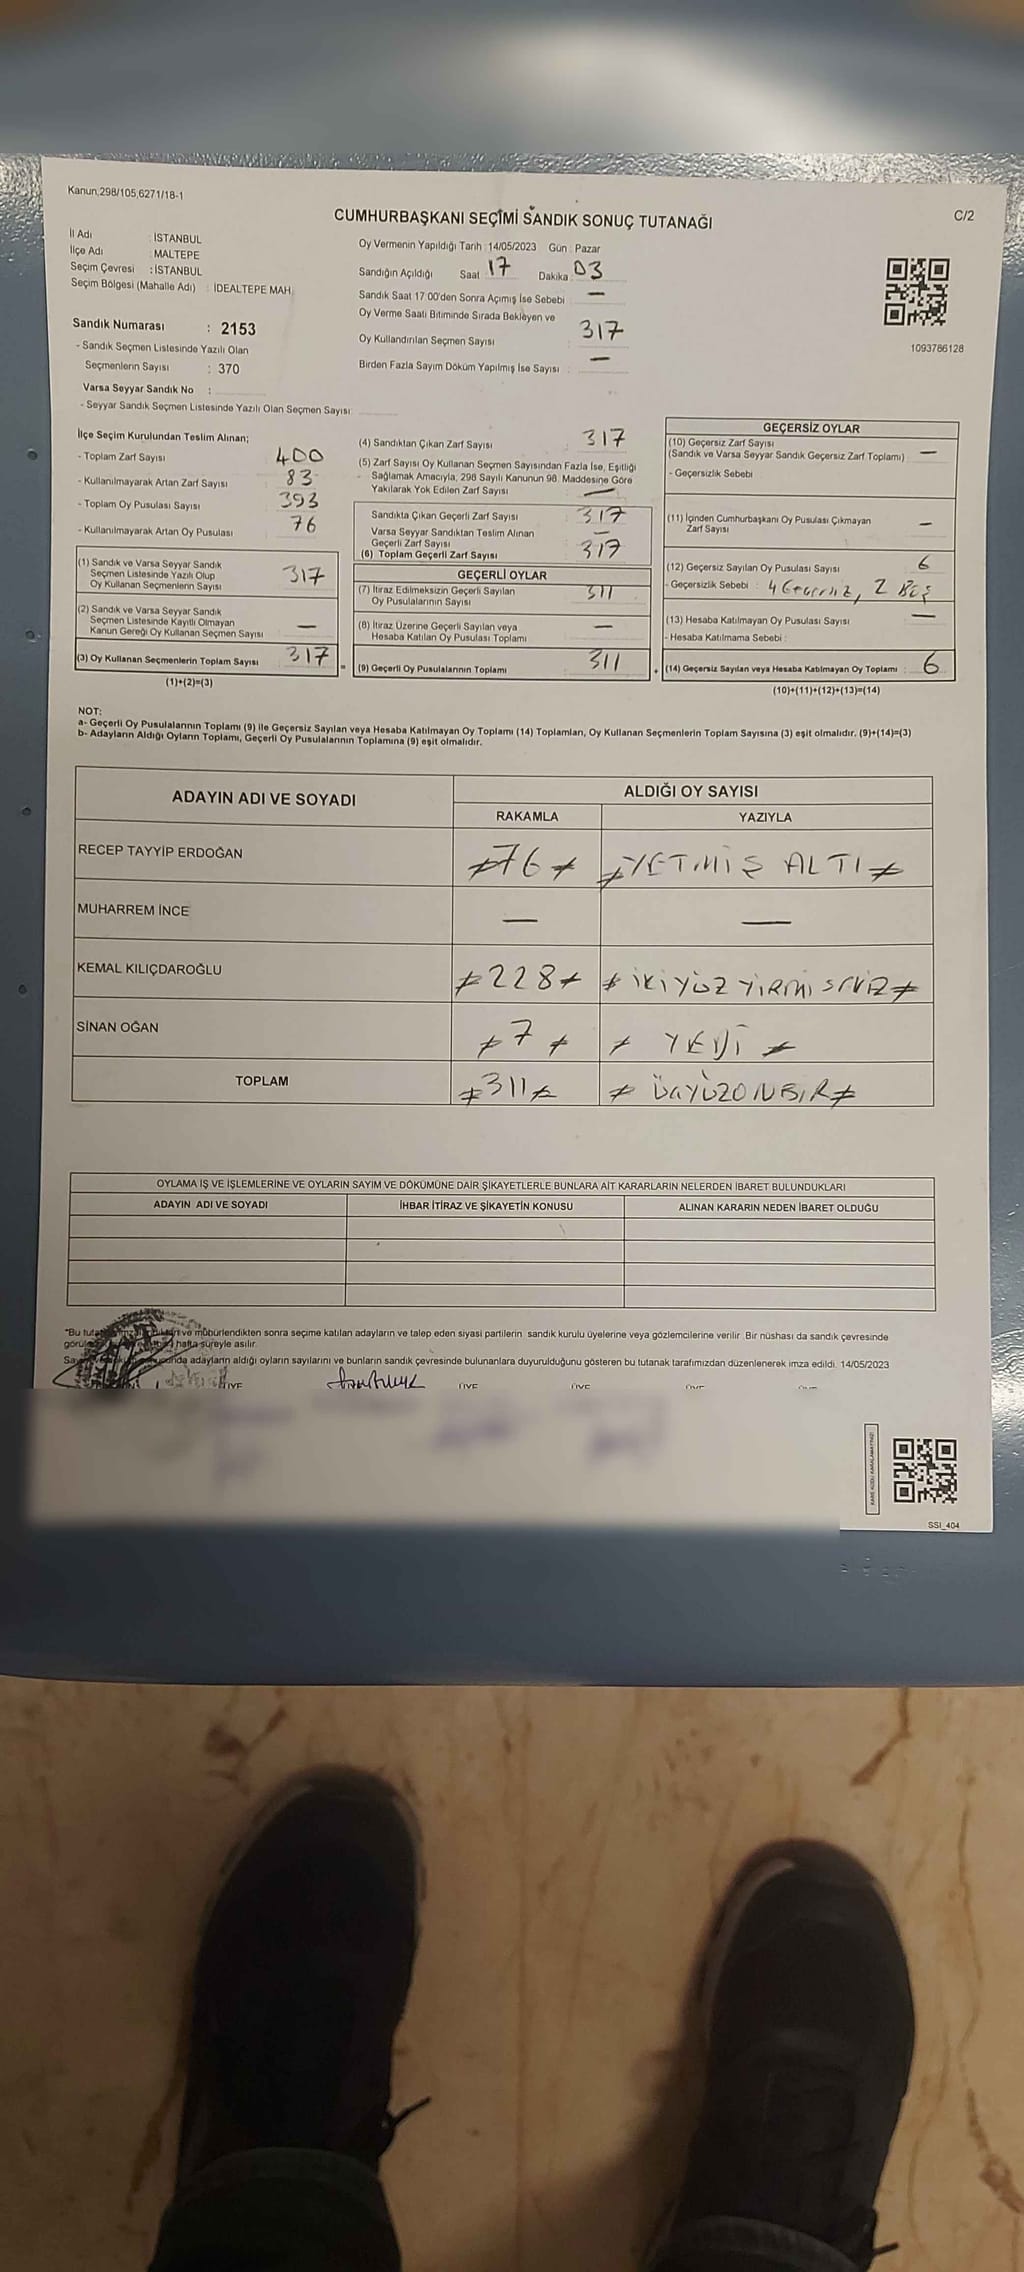 Kanun,298/105,6271/18-1
C/2
CUMHURBAŞKANI SEÇİMİ SANDIK SONUÇ TUTANAĞI
İl Adı : İSTANBUL
İlçe Adı : MALTEPE
Seçim Çevresi : İSTANBUL
Seçim Bölgesi (Mahalle Adı) : İDEALTEPE MAH.
Sandık Numarası : 2153
- Sandık Seçmen Listesinde Yazılı Olan
Seçmenlerin Sayısı : 370
Varsa Seyyar Sandık No :
- Seyyar Sandık Seçmen Listesinde Yazılı Olan Seçmen Sayısı:
Oy Vermenin Yapıldığı Tarih : 14/05/2023 Gün : Pazar
Sandığın Açıldığı Saat 17 Dakika : 03
Sandık Saat 17:00'den Sonra Açımış İse Sebebi : —
Oy Verme Saati Bitiminde Sırada Bekleyen ve
Oy Kullandırılan Seçmen Sayısı : 317
Birden Fazla Sayım Döküm Yapılmış İse Sayısı : —
1093786128
İlçe Seçim Kurulundan Teslim Alınan;
- Toplam Zarf Sayısı 400
- Kullanılmayarak Artan Zarf Sayısı : 83
- Toplam Oy Pusulası Sayısı : 393
- Kullanılmayarak Artan Oy Pusulası : 76
(1) Sandık ve Varsa Seyyar Sandık
Seçmen Listesinde Yazılı Olup
Oy Kullanan Seçmenlerin Sayısı : 317
(2) Sandık ve Varsa Seyyar Sandık
Seçmen Listesinde Kayıtlı Olmayan
Kanun Gereği Oy Kullanan Seçmen Sayısı : —
(3) Oy Kullanan Seçmenlerin Toplam Sayısı : 317
(1)+(2)=(3)
(4) Sandıktan Çıkan Zarf Sayısı : 317
(5) Zarf Sayısı Oy Kullanan Seçmen Sayısından Fazla İse, Eşitliği
Sağlamak Amacıyla, 298 Sayılı Kanunun 98. Maddesine Göre
Yakılarak Yok Edilen Zarf Sayısı : —
Sandıkta Çıkan Geçerli Zarf Sayısı : 317
Varsa Seyyar Sandıktan Teslim Alınan
Geçerli Zarf Sayısı : —
(6) Toplam Geçerli Zarf Sayısı : 317
GEÇERLİ OYLAR
(7) İtiraz Edilmeksizin Geçerli Sayılan
Oy Pusulalarının Sayısı : 311
(8) İtiraz Üzerine Geçerli Sayılan veya
Hesaba Katılan Oy Pusulası Toplamı : —
= (9) Geçerli Oy Pusulalarının Toplamı : 311
GEÇERSİZ OYLAR
(10) Geçersiz Zarf Sayısı
(Sandık ve Varsa Seyyar Sandık Geçersiz Zarf Toplamı) : —
- Geçersizlik Sebebi :
(11) İçinden Cumhurbaşkanı Oy Pusulası Çıkmayan
Zarf Sayısı : —
(12) Geçersiz Sayılan Oy Pusulası Sayısı : 6
- Geçersizlik Sebebi : 4 Geçersiz, 2 Boş
(13) Hesaba Katılmayan Oy Pusulası Sayısı : —
- Hesaba Katılmama Sebebi :
+ (14) Geçersiz Sayılan veya Hesaba Katılmayan Oy Toplamı : 6
(10)+(11)+(12)+(13)=(14)
NOT:
a- Geçerli Oy Pusulalarının Toplamı (9) ile Geçersiz Sayılan veya Hesaba Katılmayan Oy Toplamı (14) Toplamları, Oy Kullanan Seçmenlerin Toplam Sayısına (3) eşit olmalıdır. (9)+(14)=(3)
b- Adayların Aldığı Oyların Toplamı, Geçerli Oy Pusulalarının Toplamına (9) eşit olmalıdır.
ADAYIN ADI VE SOYADI ALDIĞI OY SAYISI
RAKAMLA YAZIYLA
RECEP TAYYİP ERDOĞAN ≠76≠ ≠YETMİŞ ALTI≠
MUHARREM İNCE — —
KEMAL KILIÇDAROĞLU ≠228≠ ≠İKİYÜZ YİRMİ SEKİZ≠
SİNAN OĞAN ≠7≠ ≠ YEDİ ≠
TOPLAM ≠311≠ ≠ ÜÇYÜZONBİR≠
OYLAMA İŞ VE İŞLEMLERİNE VE OYLARIN SAYIM VE DÖKÜMÜNE DAİR ŞİKAYETLERLE BUNLARA AİT KARARLARIN NELERDEN İBARET BULUNDUKLARI
ADAYIN ADI VE SOYADI İHBAR İTİRAZ VE ŞİKAYETİN KONUSU ALINAN KARARIN NEDEN İBARET OLDUĞU
*Bu ve mühürlendikten sonra seçime katılan adayların ve talep eden siyasi partilerin sandık kurulu üyelerine veya gözlemcilerine verilir. Bir nüshası da sandık çevresinde
hafta süreyle asılır.
adayların aldığı oyların sayılarını ve bunların sandık çevresinde bulunanlara duyurulduğunu gösteren bu tutanak tarafımızdan düzenlenerek imza edildi. 14/05/2023
ÜYE ÜYE ÜYE ÜYE
SSI_404